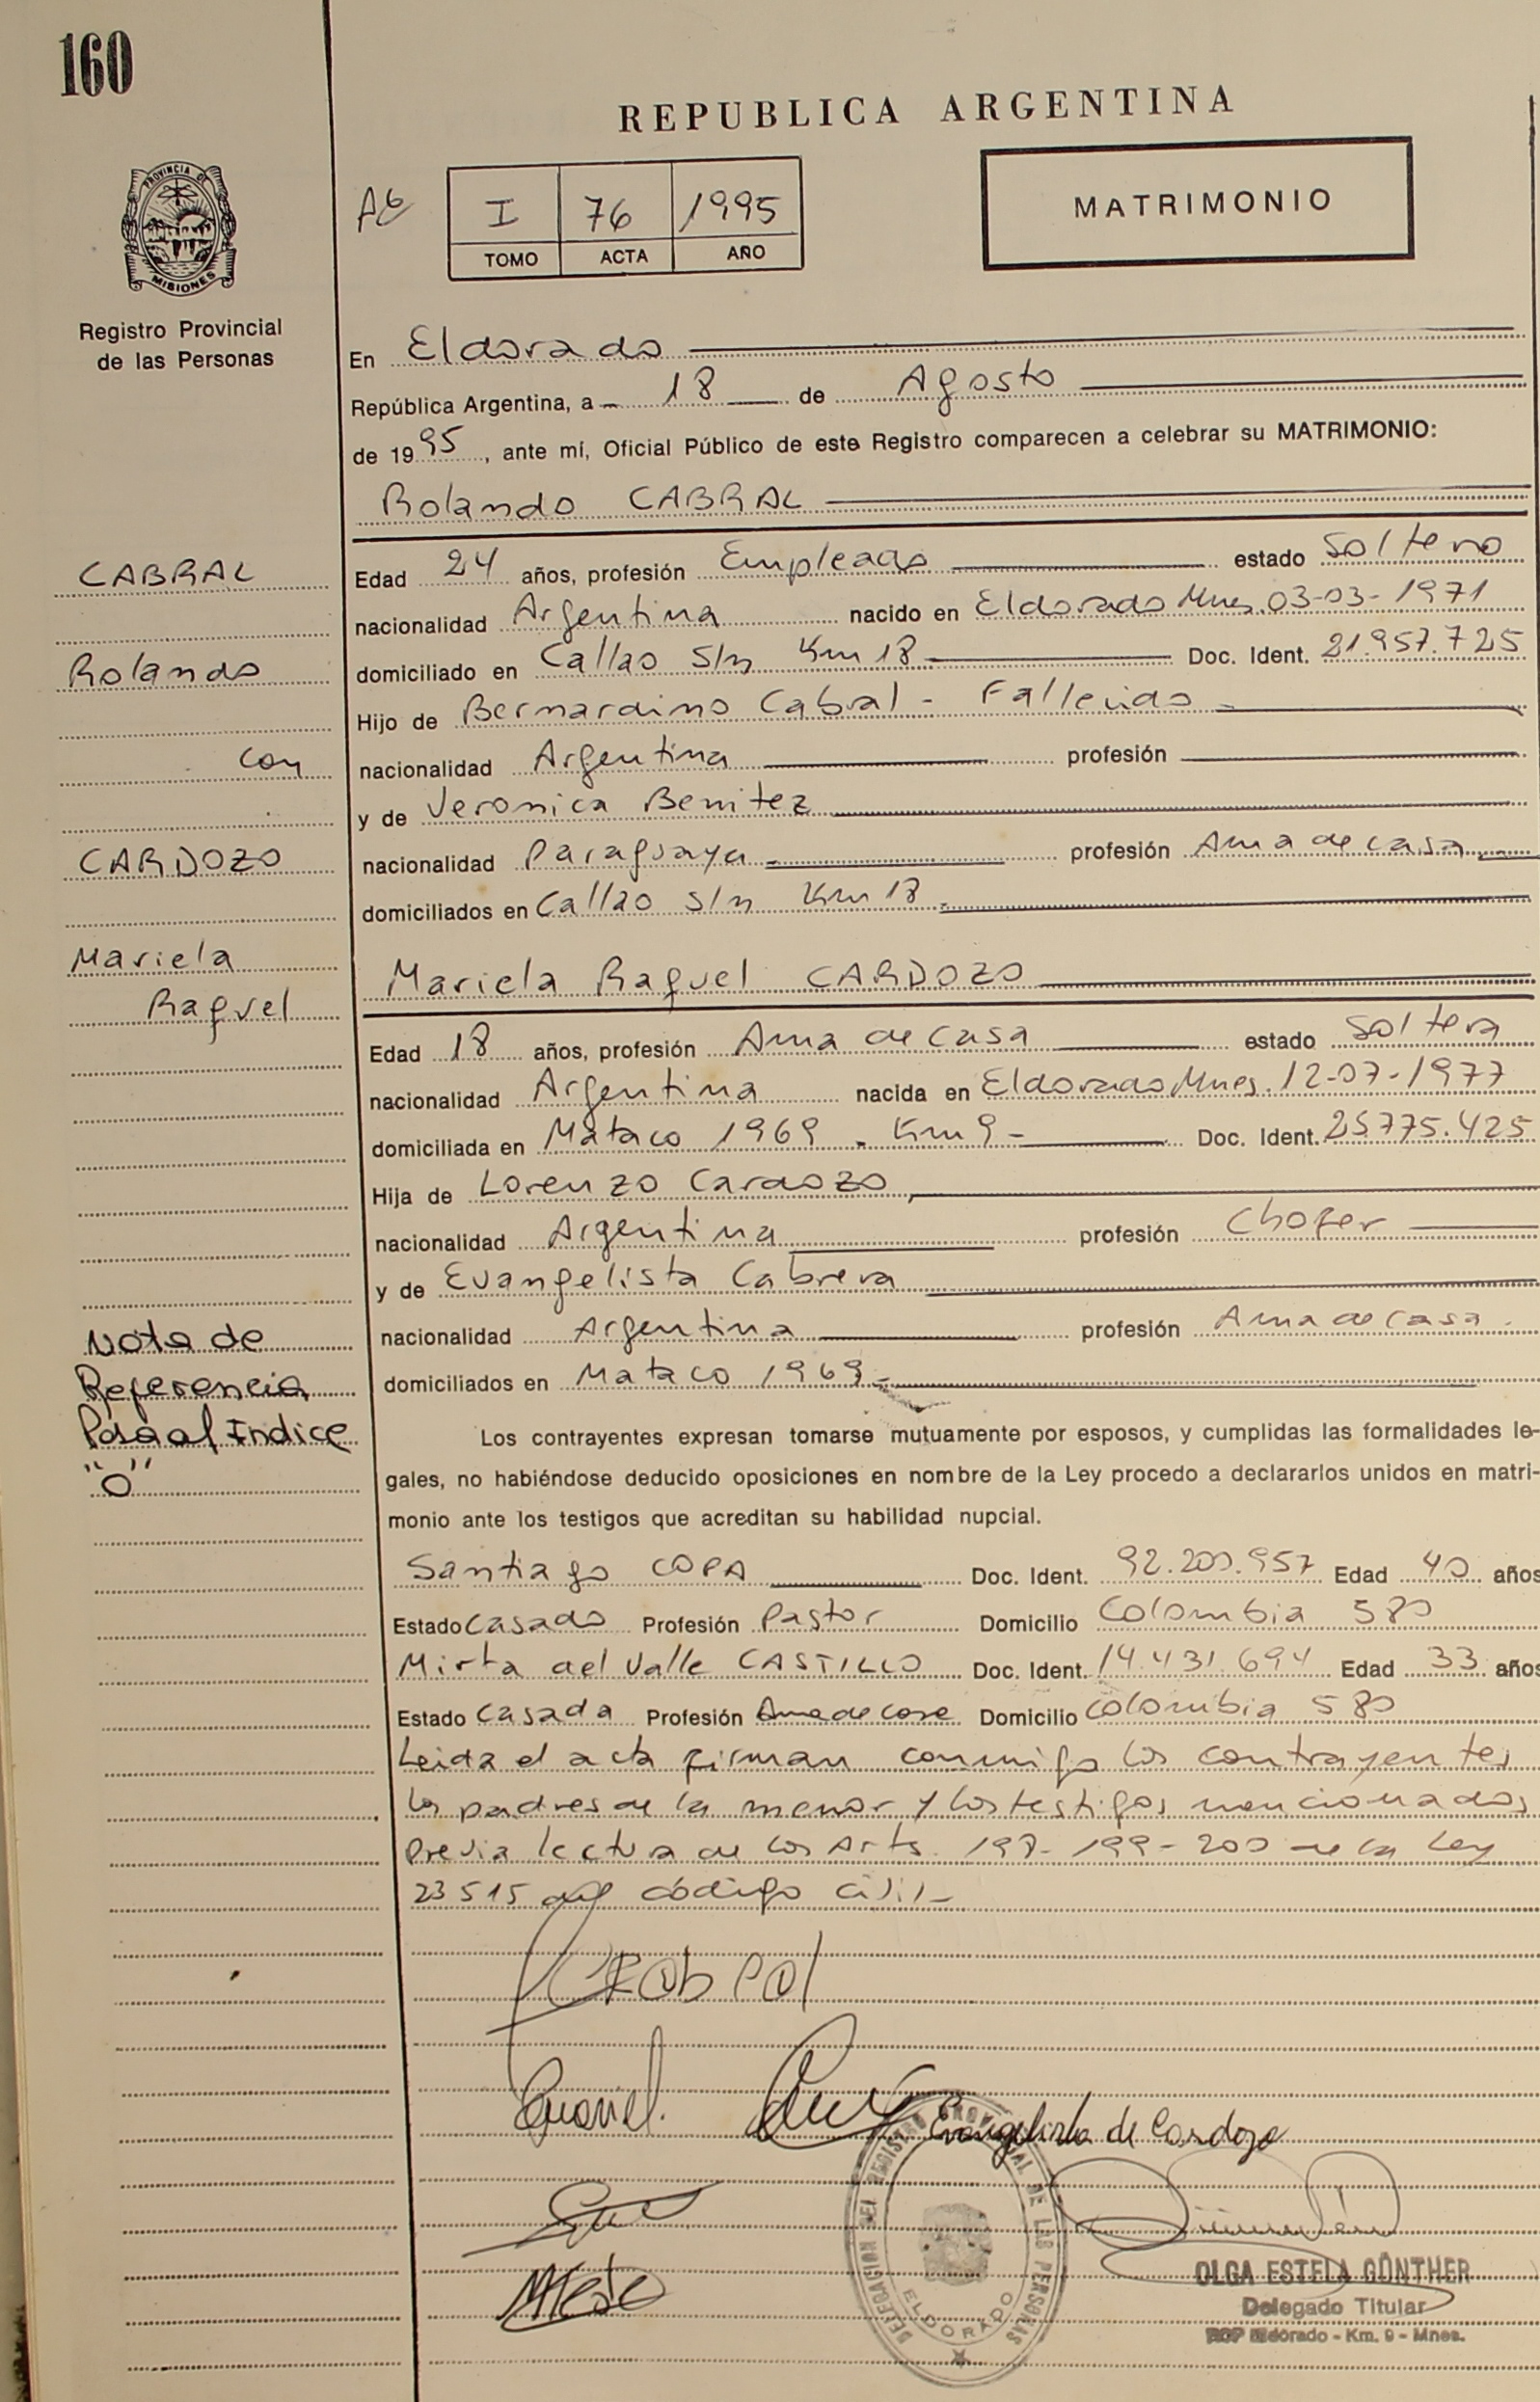 160
REPUBLICA ARGENTINA
PROVINCIA DE
MISIONES
Registro Provincial
de las Personas
I 76 1995
TOMO ACTA AÑO
MATRIMONIO
En Eldorado
República Argentina, a 18 de Agosto
de 1995, ante mí, Oficial Público de este Registro comparecen a celebrar su MATRIMONIO:
Rolando CABRAL
CABRAL
Rolando
con
CARDOZO
Mariela
Raquel
Edad 24 años, profesión Empleado estado Soltero
nacionalidad Argentina nacido en Eldorado Mnes. 03-03-1971
domiciliado en Callao S/n Km 18 Doc. Ident. 21.957.725
Hijo de Bernardino Cabral - Fallecido
nacionalidad Argentina profesión
y de Veronica Benitez
nacionalidad Paraguaya profesión Ama de casa
domiciliados en Callao S/n Km 18
Mariela Raquel CARDOZO
Edad 18 años, profesión Ama de Casa estado Soltera
nacionalidad Argentina nacida en Eldorado Mnes. 12-07-1977
domiciliada en Mataco 1969 - Km 9 - Doc. Ident. 25775.425
Hija de Lorenzo Cardozo
nacionalidad Argentina profesión Chofer
y de Evangelista Cabrera
nacionalidad Argentina profesión Ama de casa
domiciliados en Mataco 1969
Nota de
Referencia
Pasa al Indice
"O"
Los contrayentes expresan tomarse mutuamente por esposos, y cumplidas las formalidades le-
gales, no habiéndose deducido oposiciones en nombre de la Ley procedo a declararlos unidos en matri-
monio ante los testigos que acreditan su habilidad nupcial.
Santiago COPA Doc. Ident. 92.200.957 Edad 40 años
Estado Casado Profesión Pastor Domicilio Colombia 580
Mirta del Valle CASTILLO Doc. Ident. 14.431.694 Edad 33 años
Estado Casada Profesión Ama de Casa Domicilio Colombia 580
Leida el acta firman conmigo los contrayentes
los padres de la menor y los testigos mencionados
previa lectura de los Arts. 198-199-200 de la Ley
23515 del código civil
Evangelista de Cardozo
DELEGACION DEL REGISTRO PROVINCIAL DE LAS PERSONAS
ELDORADO
OLGA ESTELA GÜNTHER
Delegado Titular
RCP Eldorado - Km. 9 - Mnes.